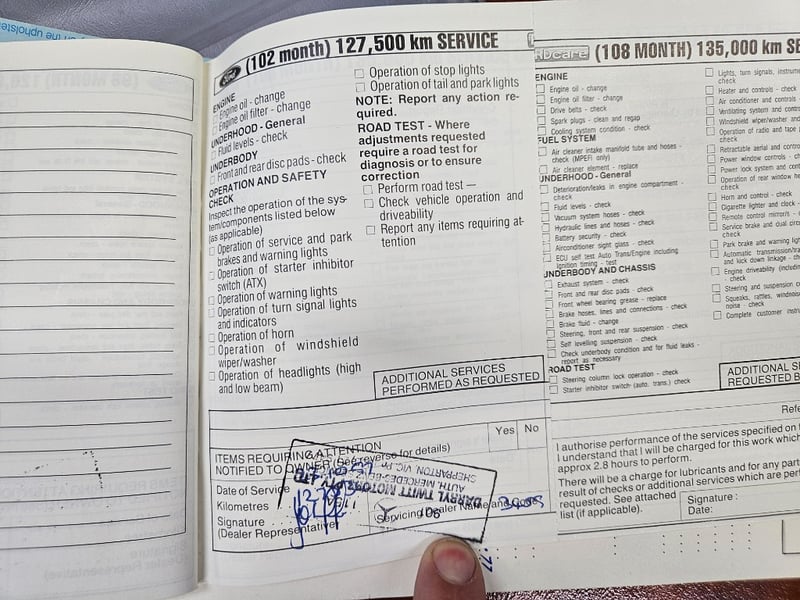 on the upholster
Ford (102 month) 127,500 km SERVICE
ENGINE
Engine oil - change
Engine oil filter - change
UNDERHOOD - General
Fluid levels - check
UNDERBODY
Front and rear disc pads - check
OPERATION AND SAFETY
CHECK
Inspect the operation of the sys-
tem/components listed below
(as applicable)
Operation of service and park
brakes and warning lights
Operation of starter inhibitor
switch (ATX)
Operation of warning lights
Operation of turn signal lights
and indicators
Operation of horn
Operation of windshield
wiper/washer
Operation of headlights (high
and low beam)
Operation of stop lights
Operation of tail and park lights
NOTE: Report any action re-
quired.
ROAD TEST - Where
adjustments requested
require a road test for
diagnosis or to ensure
correction
Perform road test —
Check vehicle operation and
driveability
Report any items requiring at-
tention
ADDITIONAL SERVICES
PERFORMED AS REQUESTED
Yes No
ITEMS REQUIRING ATTENTION
NOTIFIED TO OWNER (See reverse for details)
Date of Service
Kilometres
Signature
(Dealer Representative)
Servicing Dealer Name and
DARRYL TWITT MOTORS PTY LTD
AUTH. MERCEDES-BENZ
SHEPPARTON, VIC.
care (108 MONTH) 135,000 km SE
ENGINE
Engine oil - change
Engine oil filter - change
Drive belts - check
Spark plugs - clean and regap
Cooling system condition - check
FUEL SYSTEM
Air cleaner intake manifold tube and hoses -
check (MPEFI only)
Air cleaner element - replace
UNDERHOOD - General
Deterioration/leaks in engine compartment -
check
Fluid levels - check
Vacuum system hoses - check
Hydraulic lines and hoses - check
Battery security - check
Airconditioner sight glass - check
ECU self test Auto Trans/Engine including
ignition timing - test
UNDERBODY AND CHASSIS
Exhaust system - check
Front and rear disc pads - check
Front wheel bearing grease - replace
Brake hoses, lines and connections - check
Brake fluid - change
Steering, front and rear suspension - check
Self levelling suspension - check
Check underbody condition and for fluid leaks -
report as necessary
ROAD TEST
Steering column lock operation - check
Starter inhibitor switch (auto. trans.) check
Lights, turn signals, instrume
check
Heater and controls - check
Air conditioner and controls -
Ventilating system and contro
Windshield wiper/washer and
Operation of radio and tape p
check
Retractable aerial and contro
Power window controls - ch
Power lock system and cont
Operation of rear window he
check
Horn and control - check
Cigarette lighter and clock -
Remote control mirrors -
Service brake and dual circu
check
Park brake and warning ligh
Automatic transmission/tra
and lock down linkage - ch
Engine driveability (includin
- check
Steering and suspension c
Squeaks, rattles, windnois
noise - check
Complete customer instru
ADDITIONAL SE
REQUESTED B
Refe
I authorise performance of the services specified on t
I understand that I will be charged for this work which
approx 2.8 hours to perform.
There will be a charge for lubricants and for any part
result of checks or additional services which are perf
requested. See attached
list (if applicable).
Signature :
Date: